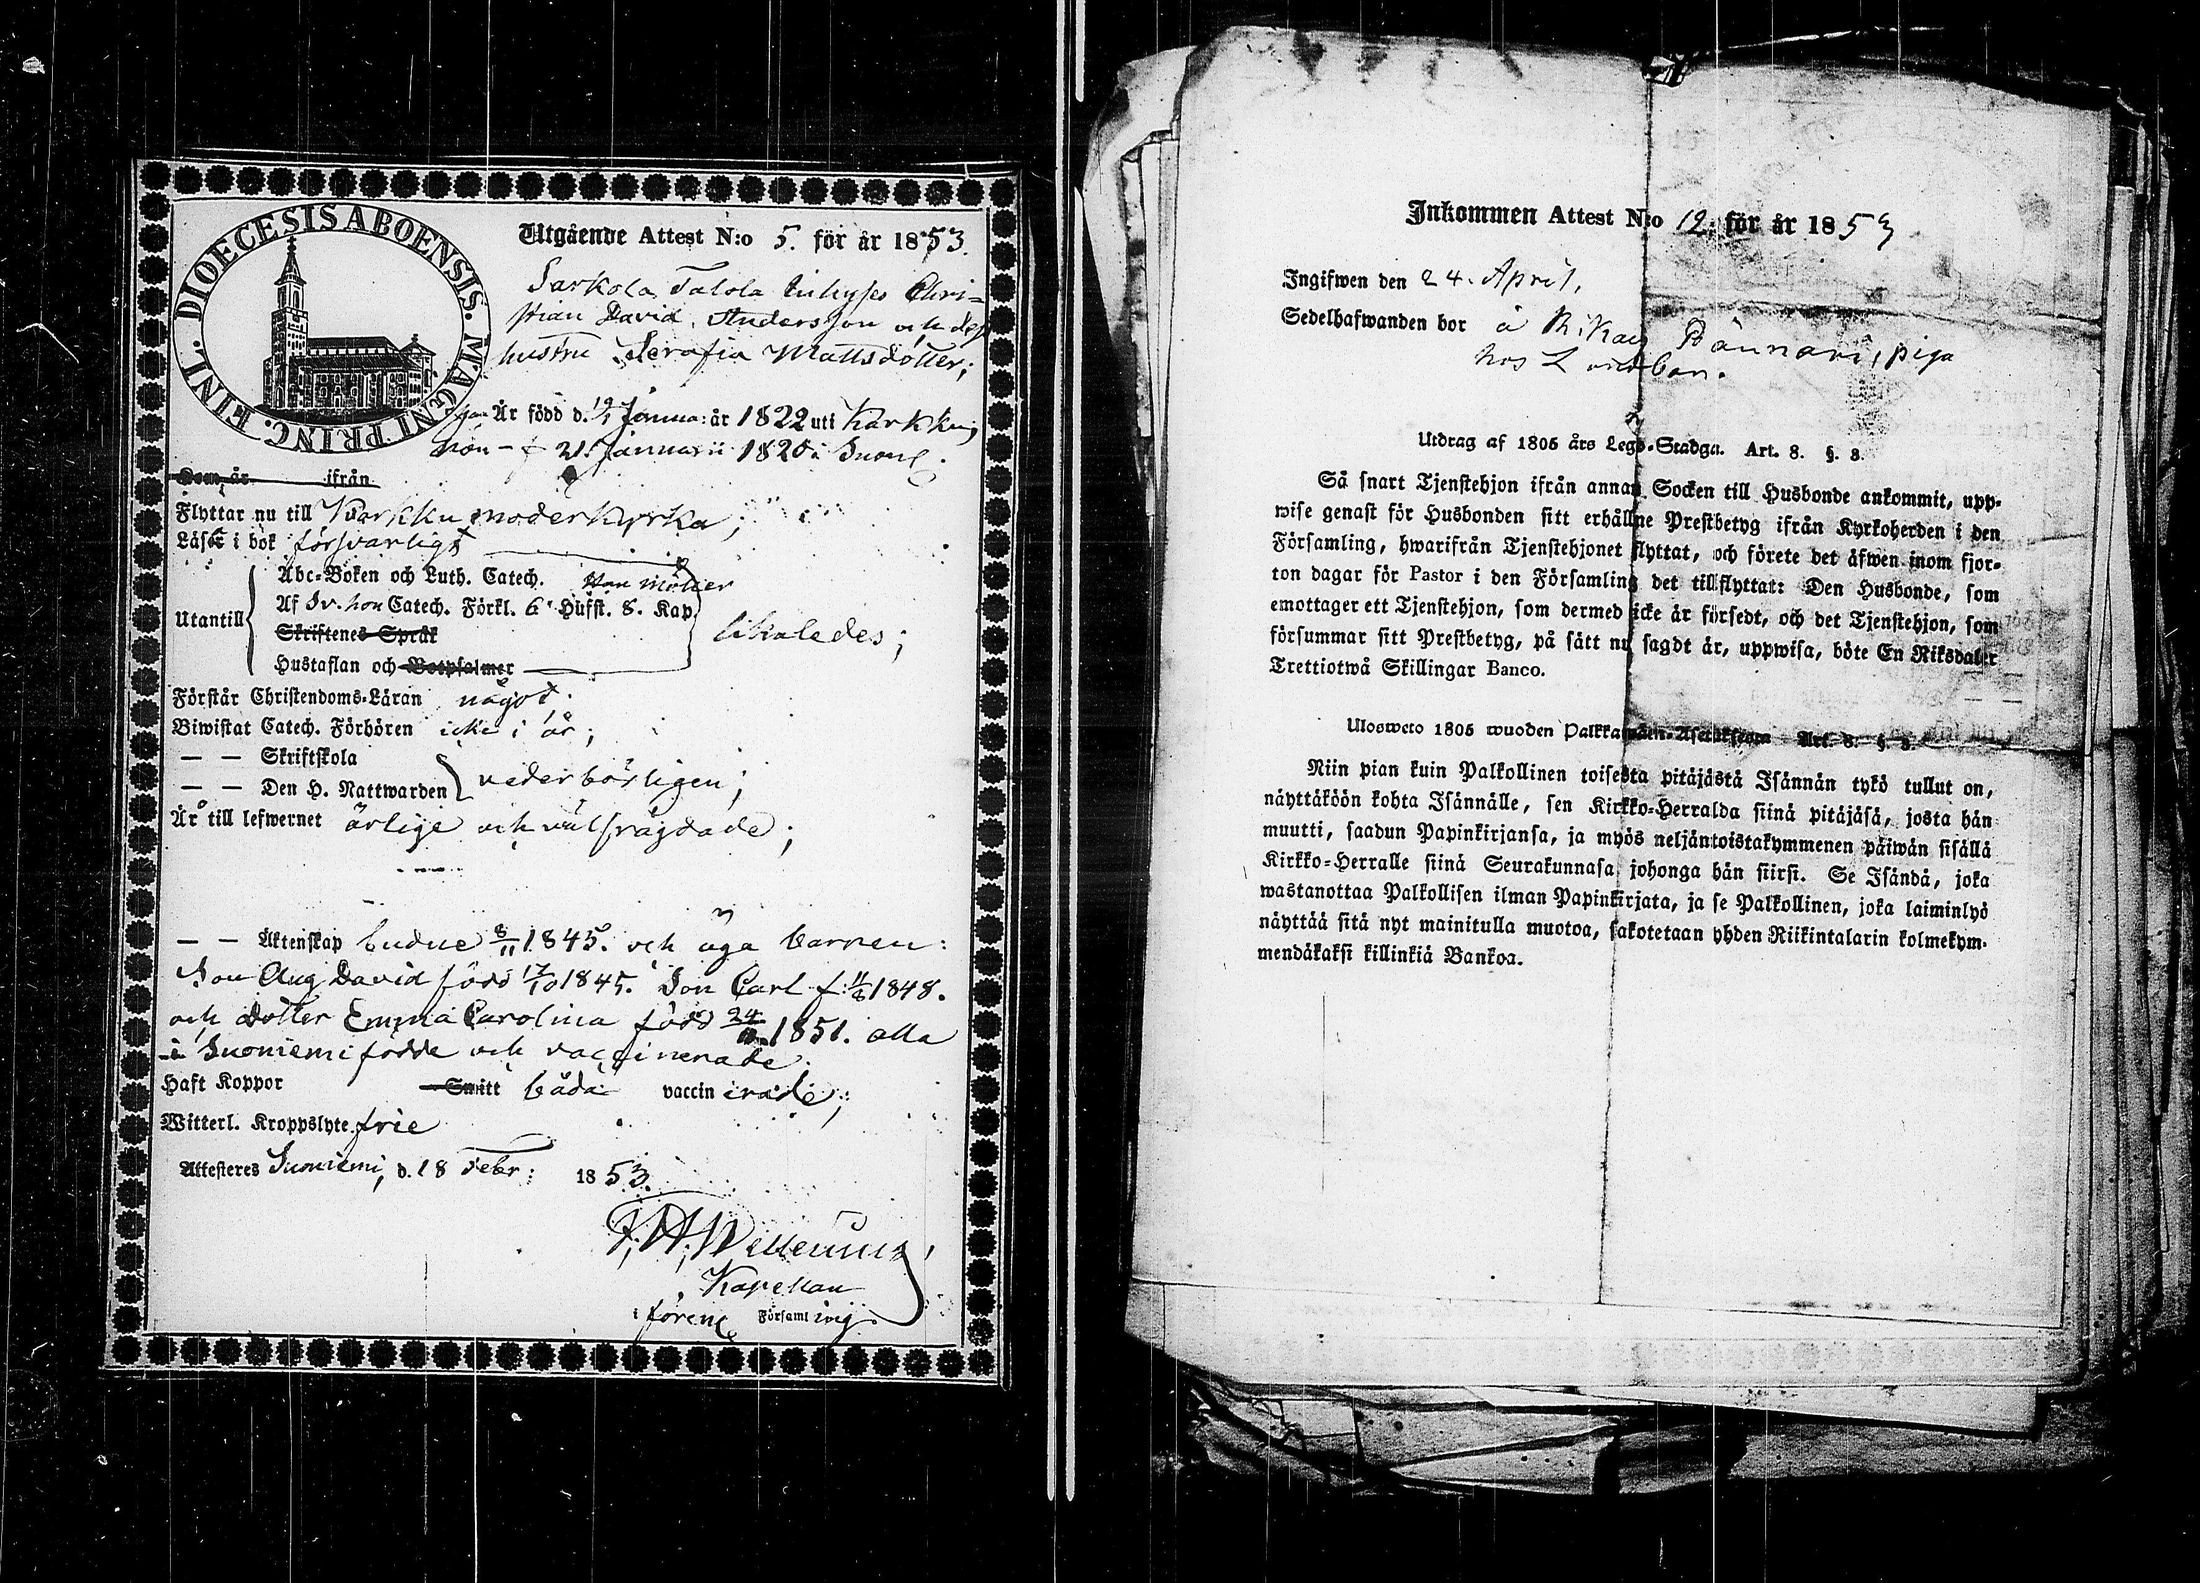 DIOECESIS ABOENSIS. MAGNI PRINC. FINL.
Utgående Attest N:o 5. för år 1853.
Sarkola Talola Inhyses Chri-
stian David Andersson och dess
hustru Serafia Mattsdotter;
Är född d. 19/1 Janua: år 1822 uti Karkku,
hon - f 21 Januarii 1820 i Suon.
Dom. är ifrån
Flyttar nu till Karkku moderkyrka;
Läser i bok försvarligt
Utantill
Abc-Boken och Luth. Catech. Han möter
Af Sv. hon Catech. Förkl. 6 Hufst. 8. Kap.
Skriftenes Språk
likaledes;
Hustaflan och Botpsalmer
Förstår Christendoms-Läran något;
Biwistat Catech. Förhören icke i år;
— — Skriftskola
— — Den H. Nattwarden vederbörligen;
Är till lefwernet ärlige och välfrägdade;
— — Äktenskap 8/11 1845. och äga barnen:
Son Aug David född 17/10 1845. Son Carl f. 11/8 1848.
och dotter Emma Carolina född 24 1851. alla
i Suoniemi födde och vaccinerade
Haft Koppor Smitt båda vaccinerade;
Witterl. Kroppslyte frie
Attesteres Suoniemi, d. 18 Febr: 1853.
Kapellan
i förene Församling.
Inkommen Attest N:o 12. för år 1853
Ingifwen den 24. April.
Sedelhafwanden bor å Pännäri, piga
hos
Utdrag af 1805 års Lego-Stadga. Art. 8. §. 3.
Så snart Tjenstehjon ifrån annan Socken till Husbonde ankommit, upp-
wise genast för Husbonden sitt erhållne Prestbetyg ifrån Kyrkoherden i den
Församling, hwarifrån Tjenstehjonet flyttat, och förete det äfwen inom fjor-
ton dagar för Pastor i den Församling det tillflyttat: Den Husbonde, som
emottager ett Tjenstehjon, som dermed icke är försedt, och det Tjenstehjon, som
försummar sitt Prestbetyg, på sätt nu sagdt är, uppwisa, böte En Riksdaler
Trettiotwå Skillingar Banco.
Ulosweto 1805 wuoden Palkkawäen-Asetuksesta Art. 8. §. 3.
Niin pian kuin Palkollinen toisesta pitäjästä Isännän tykö tullut on,
näyttäköön kohta Isännälle, sen Kirkko-Herralda siinä pitäjäsä, josta hän
muutti, saadun Papinkirjansa, ja myös neljäntoistakymmenen päiwän sisällä
Kirkko-Herralle siinä Seurakunnasa johonga hän siirsi. Se Isändä, joka
wastanottaa Palkollisen ilman Papinkirjata, ja se Palkollinen, joka laiminlyö
näyttää sitä nyt mainitulla muotoa, sakotetaan yhden Riikintalarin kolmekym-
mendäkaksi killinkiä Bankoa.